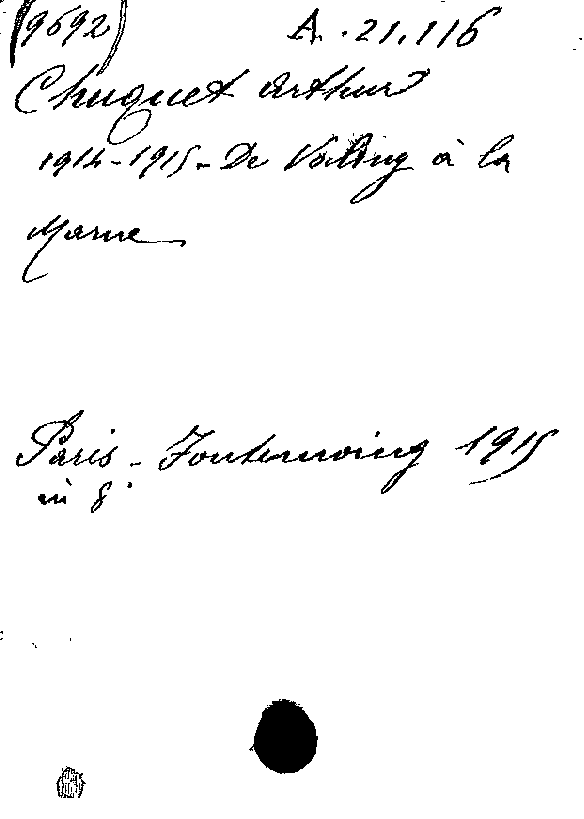 (9692) A. 21.116
Chuquet Arthur
1914-1915 - De Valmy à la
Marne
Paris - Fontemoing 1915
in 8°